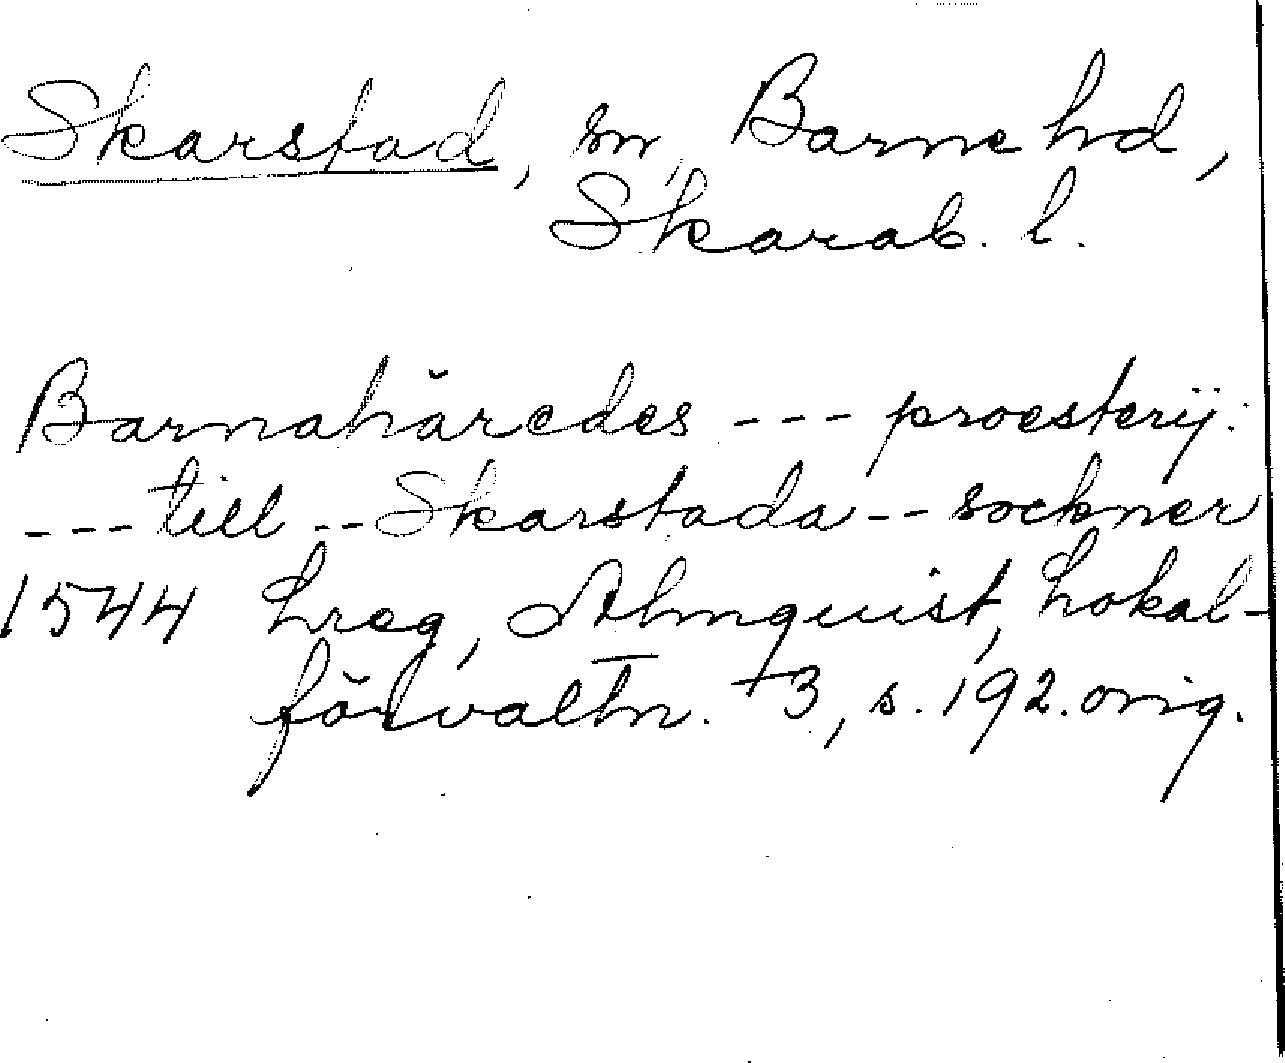 Skarstad, sn, Barne hd,
Skarab. l.
Barnahäredes --- proesterij:
--- till -- Skarstada -- sockner
1544 Lreg, Almquist, Lokal-
förvaltn. I 3, s. 192. orig.